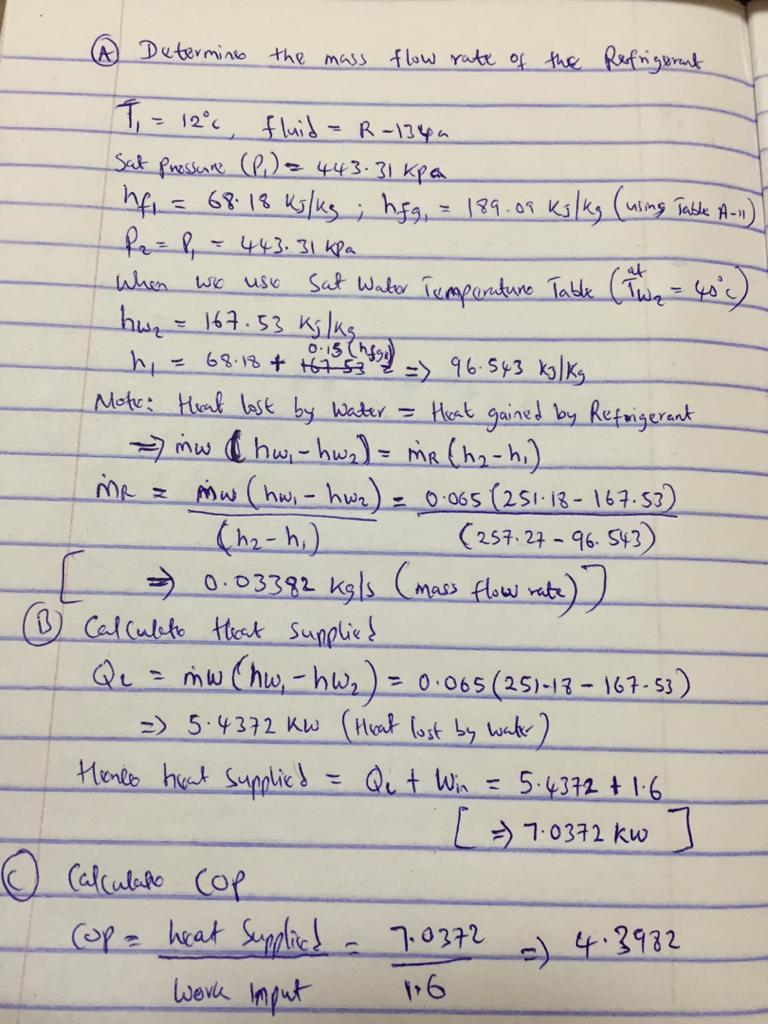 (A) Determine the mass flow rate of the Refrigerant
T₁ = 12°C, fluid = R-134a
Sat Pressure (P₁) = 443.31 kpa
hf₁ = 68.18 KJ/kg ; hfg₁ = 189.09 KJ/kg (using Table A-11)
P₂ = P₁ = 443.31 kPa
When we use Sat Water Temperature Table (at Tw₂ = 40°C)
hw₂ = 167.53 KJ/kg
h₁ = 68.18 + 0.15(hfg₁) => 96.543 kJ/kg
Note: Heat lost by Water = Heat gained by Refrigerant
=> ṁw (hw₁ - hw₂) = ṁR (h₂ - h₁)
ṁR = ṁw (hw₁ - hw₂) / (h₂ - h₁) = 0.065 (251.18 - 167.53) / (257.27 - 96.543)
[ => 0.03382 kg/s (mass flow rate) ]
(B) Calculate Heat Supplied
QL = ṁw (hw₁ - hw₂) = 0.065 (251.18 - 167.53)
=> 5.4372 KW (Heat lost by water)
Hence heat supplied = QL + Win = 5.4372 + 1.6
[ => 7.0372 kW ]
(C) Calculate COP
COP = heat Supplied / Work Input = 7.0372 / 1.6 => 4.3982